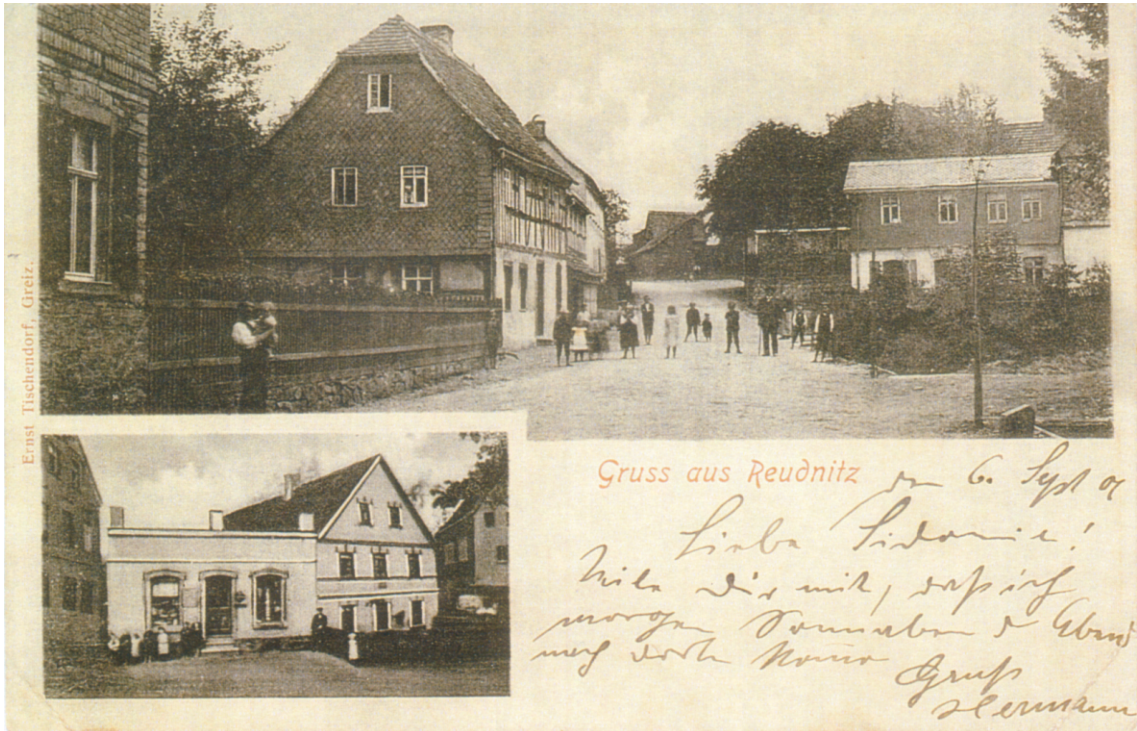 Ernst Tischendorf, Greiz.
Gruss aus Reudnitz
den 6. Sept 01
Liebe Sidonie!
Teile Dir mit, daß ich
morgen Sonnabend Abend
nach dort komme
Gruß
Hermann